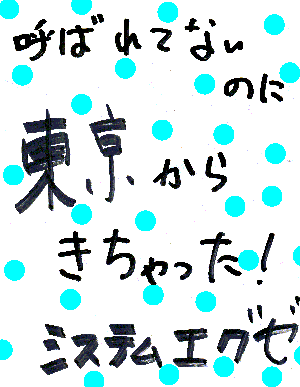 呼ばれてない
のに
東京から
きちゃった!
システムエグゼ